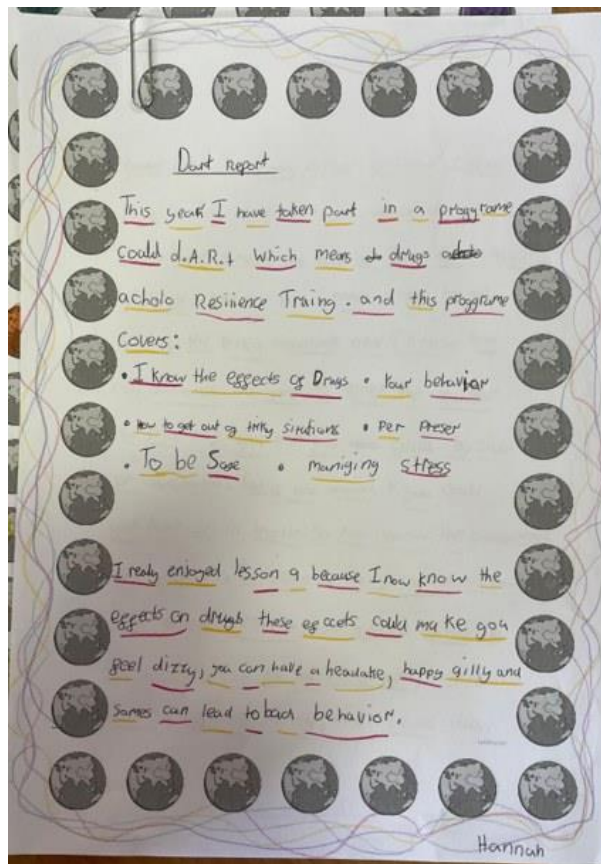 Dart report
This year I have taken part in a progyrame
could d.A.R.t which means drugs
acholo Resiiience Traing. and this proggrume
Covers:
• I know the effects of Drugs • Your behavior
• How to get out of triky sitations • Per Preser
• To be Safe • maniging stress
I realy enjoyed lesson 9 because I now know the
effects on drugs these effccets could make you
feel dizzy, you can have a headake, happy gilly and
somes can lead to bad behavior.
Hannah